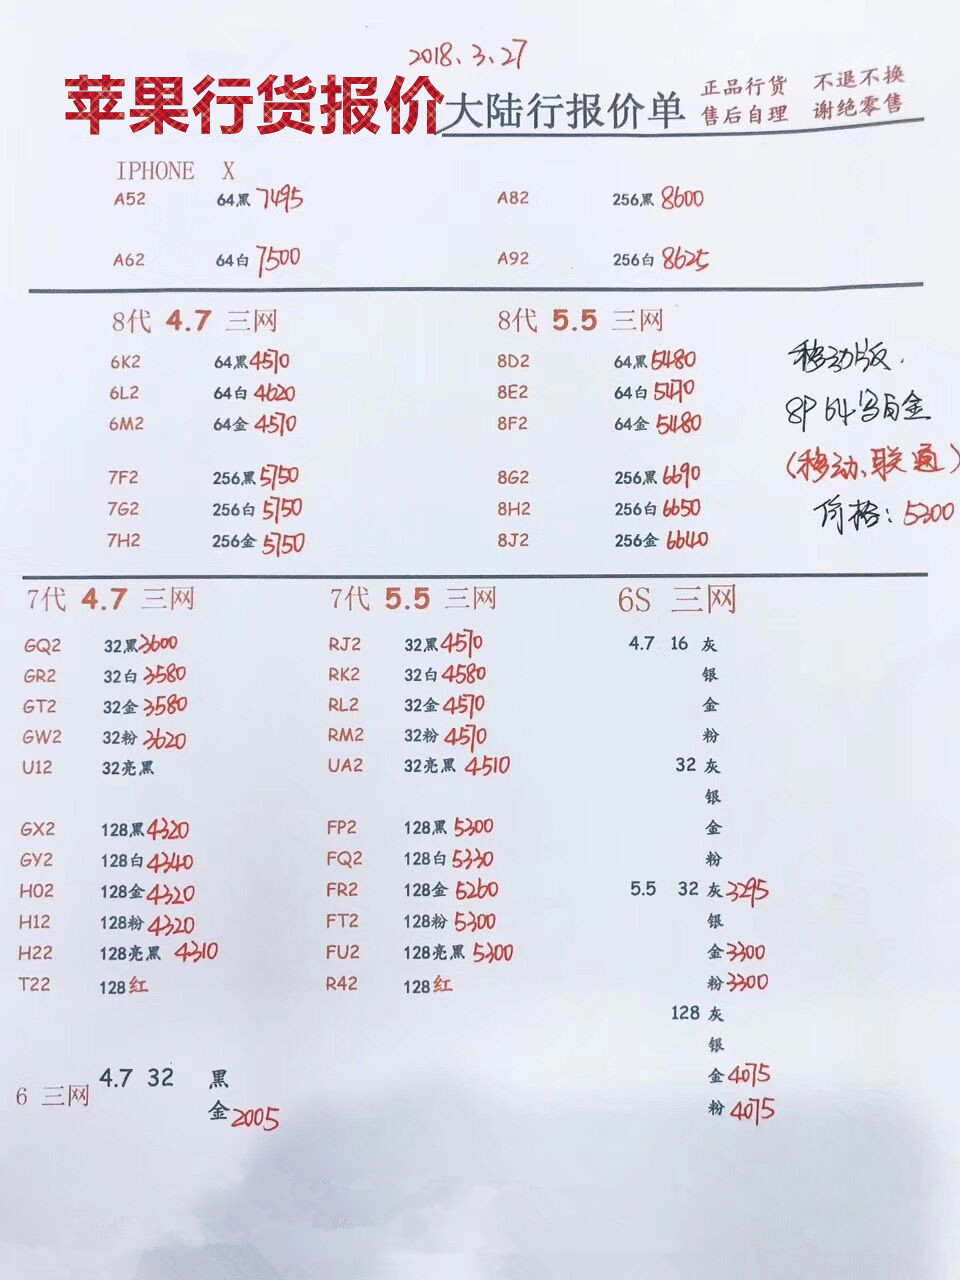 2018.3.27
苹果行货报价 大陆行报价单 正品行货 不退不换
售后自理 谢绝零售
IPHONE X
A52 64黑 7495 A82 256黑 8600
A62 64白 7500 A92 256白 8625
8代 4.7 三网 8代 5.5 三网
6K2 64黑 4570 8D2 64黑 5480 移动版.
6L2 64白 4620 8E2 64白 5470
6M2 64金 4570 8F2 64金 5480 8P 64 金
7F2 256黑 5750 8G2 256黑 6690 (移动、联通)
7G2 256白 5750 8H2 256白 6650 价格: 5200
7H2 256金 5750 8J2 256金 6640
7代 4.7 三网 7代 5.5 三网 6S 三网
GQ2 32黑 3600 RJ2 32黑 4570 4.7 16 灰
GR2 32白 3580 RK2 32白 4580 银
GT2 32金 3580 RL2 32金 4570 金
GW2 32粉 3620 RM2 32粉 4570 粉
U12 32亮黑 UA2 32亮黑 4510 32 灰
银
GX2 128黑 4320 FP2 128黑 5300 金
GY2 128白 4340 FQ2 128白 5330 粉
H02 128金 4320 FR2 128金 5260 5.5 32 灰 3295
H12 128粉 4320 FT2 128粉 5300 银
H22 128亮黑 4310 FU2 128亮黑 5300 金 3300
T22 128红 R42 128红 粉 3300
128 灰
银
6 三网 4.7 32 黑 金 4075
金 2005 粉 4075